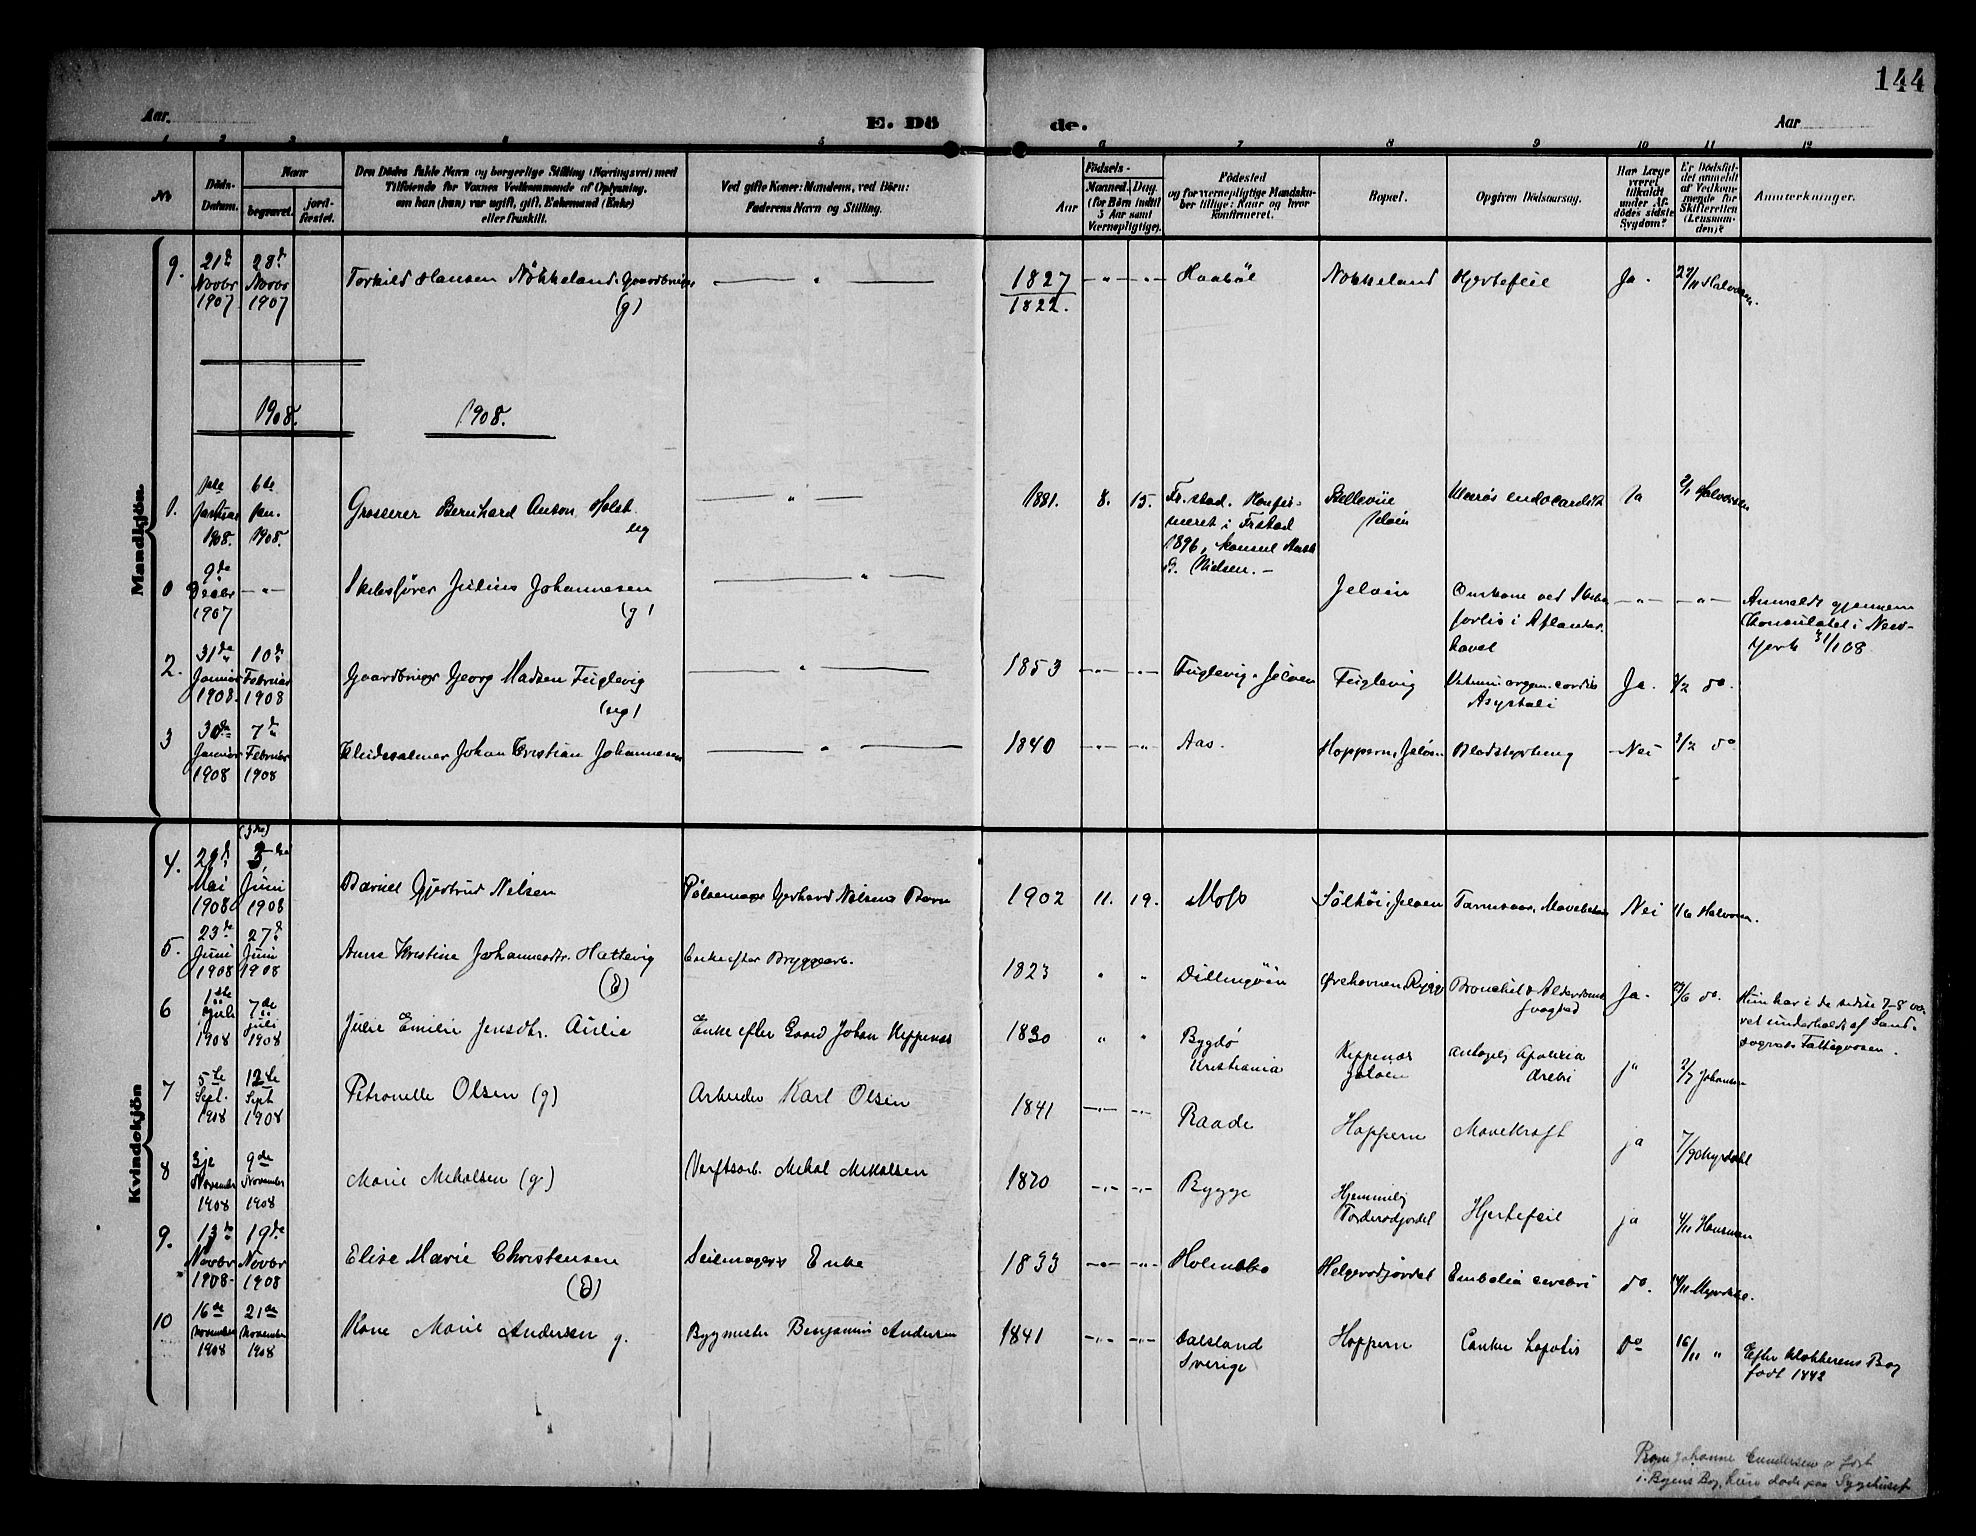 144
Aar.
E. Dö
de.
Aar
1 2 3 4 5 6 7 8 9 10 11 12
No
Döds-
Datum.
Naar
begravet.
jord-
festet.
Den Dödes fulde Navn og borgerlige Stilling (Næringsvei) med
Tilföiende for Voxnes Vedkommende af Oplysning,
om han (hun) var ugift, gift, Enkemand (Enke)
eller fraskilt.
Ved gifte Koner: Mandens, ved Börn:
Faderens Navn og Stilling.
Födsels-
Aar
Maaned. Dag.
(for Börn indtil
5 Aar samt
Værnepligtige).
Födested
og for værnepligtige Mandska-
ber tillige: Naar og hvor
konfirmeret.
Bopæl.
Opgiven Dödsaarsag.
Har Læge
været
tilkaldt
under Af-
dödes sidste
Sygdom?
Er Dödsfal-
det anmeldt
af Vedkom-
mende for
Skifteretten
(Lensman-
den)?
Anmærkninger.
Mandkjön.
9. 21de Novbr 1907 28de Novbr 1907 Torkild Hansen Nökkeland, Gaardbruger (g) — " — 1827 / 1822. — " — — " — Haaböl Nökkeland Hjertefeil Ja. 27/11 Halvorsen.
1908. 1908.
1. 1ste Januar 1908. 6te Jan. 1908. Grosserer Bernhard Anton Holst ug — " — 1881. 8. 15. Fr.stad. Konfir-
meret i Frstad
1896, Konsul
Nielsen. — Bellevue Jeløen endocarditis Ja 2/1 Halvorsen
0 9de Decbr 1907 — " — Skibsfører Julius Johannesen (g) — " — Jeløen Omkom ved Skibs
forlis i Atlanter-
havet — " — — " — Anmeldt gjennem
Konsulatet i New-
York 31/1 08
2. 31de Januar 1908. 10de Februar 1908 Gaardbruger Georg Madsen Fuglevig (ug) — " — 1853 — " — — " — Fuglevig, Jeløen Fuglevig Vitium organ. cordis
Asystoli Ja. 3/2 do.
3 30de Januar 1908 7de Februar 1908 Johan Kristian Johannesen — " — 1840 — " — — " — Aas. Hoppern, Jeløen Blodstyrtning Nei 3/2 do
Kvindekjön
4. 29de Mai 1908 (3die) Juni 1908 Barnet Gjertrud Nilsen Pølsemager Gerhard Nilsens Barn 1902 11. 19. Moss Jeløen Nei 1/6 Halvorsen.
5. 23de Juni 1908 27de Juni 1908 Anne Kristine Johannesdtr. Hattevig (d) Enke efter Bryggearb. 1823 " " Dillingöen Ørehavnen Rygge Bronchit & Alderdoms
svaghed Ja. do. Hun har i de sidste 7-8 aar
været underholdt af Sand-
sogns Fattigvæsen.
6 1ste Juli 1908 7de Juli 1908 Julie Emilie Jensdtr. Aulie Enke efter Gaard Johan Keppenæs 1830 " " Bygdö
Kristiania Keppenæs
Jeløen Apoplexia
cerebri ja 2/7 Johansen
7 5te Sept. 1908 12te Sept 1908 Petronelle Olsen (g) Arbeider Karl Olsen 1841 — " — — " — Raade Hoppern Mavekræft ja 7/9 Myrdahl
8 3je November 1908 9de November 1908 Marie Mikalsen (g) Værftsarb. Mikal Mikalsen 1870 — " — — " — Rygge Hjemmelig
Torderødjordet Hjertefeil ja 4/11 Hansman
9. 13de Novbr 1908. 19de Novbr 1908 Elise Marie Christensen (d) Seilmagers Enke 1833 — " — — " — Helgerødjordet Embolia cerebri do. 14/11 Myrdahl.
10 16de November 1908 21de November 1908 Kone Marie Andersen g. Bygmester Benjamin Andersen 1841 — " — — " — Dalsland
Sverige Hoppern do 16/11 " Efter Klokkerens Bog
født 1842
Johanne Gundersen er ført
i Byens Bog, hun døde paa Sygehuset